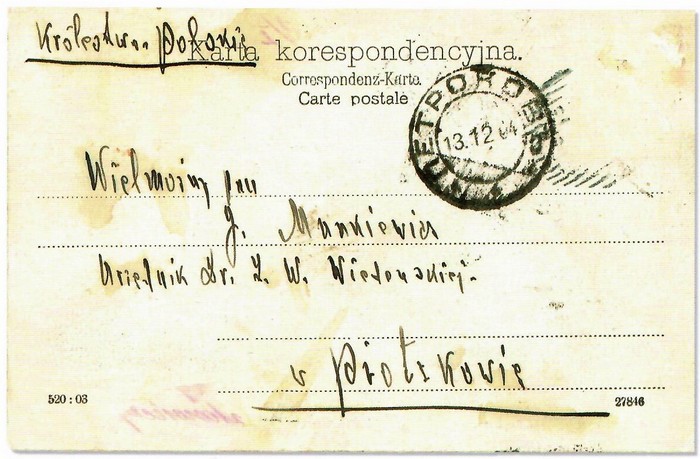 Królestwo Polskie
Karta korespondencyjna.
Correspondenz-Karte.
Carte postale
ПЕТРОКОВЪ
13.12.04
Wielmożny pan
J. Munkiewicz
Urzędnik Dr. Ż. W. Wiedeńskiej.
w Piotrkowie
520:03
27846